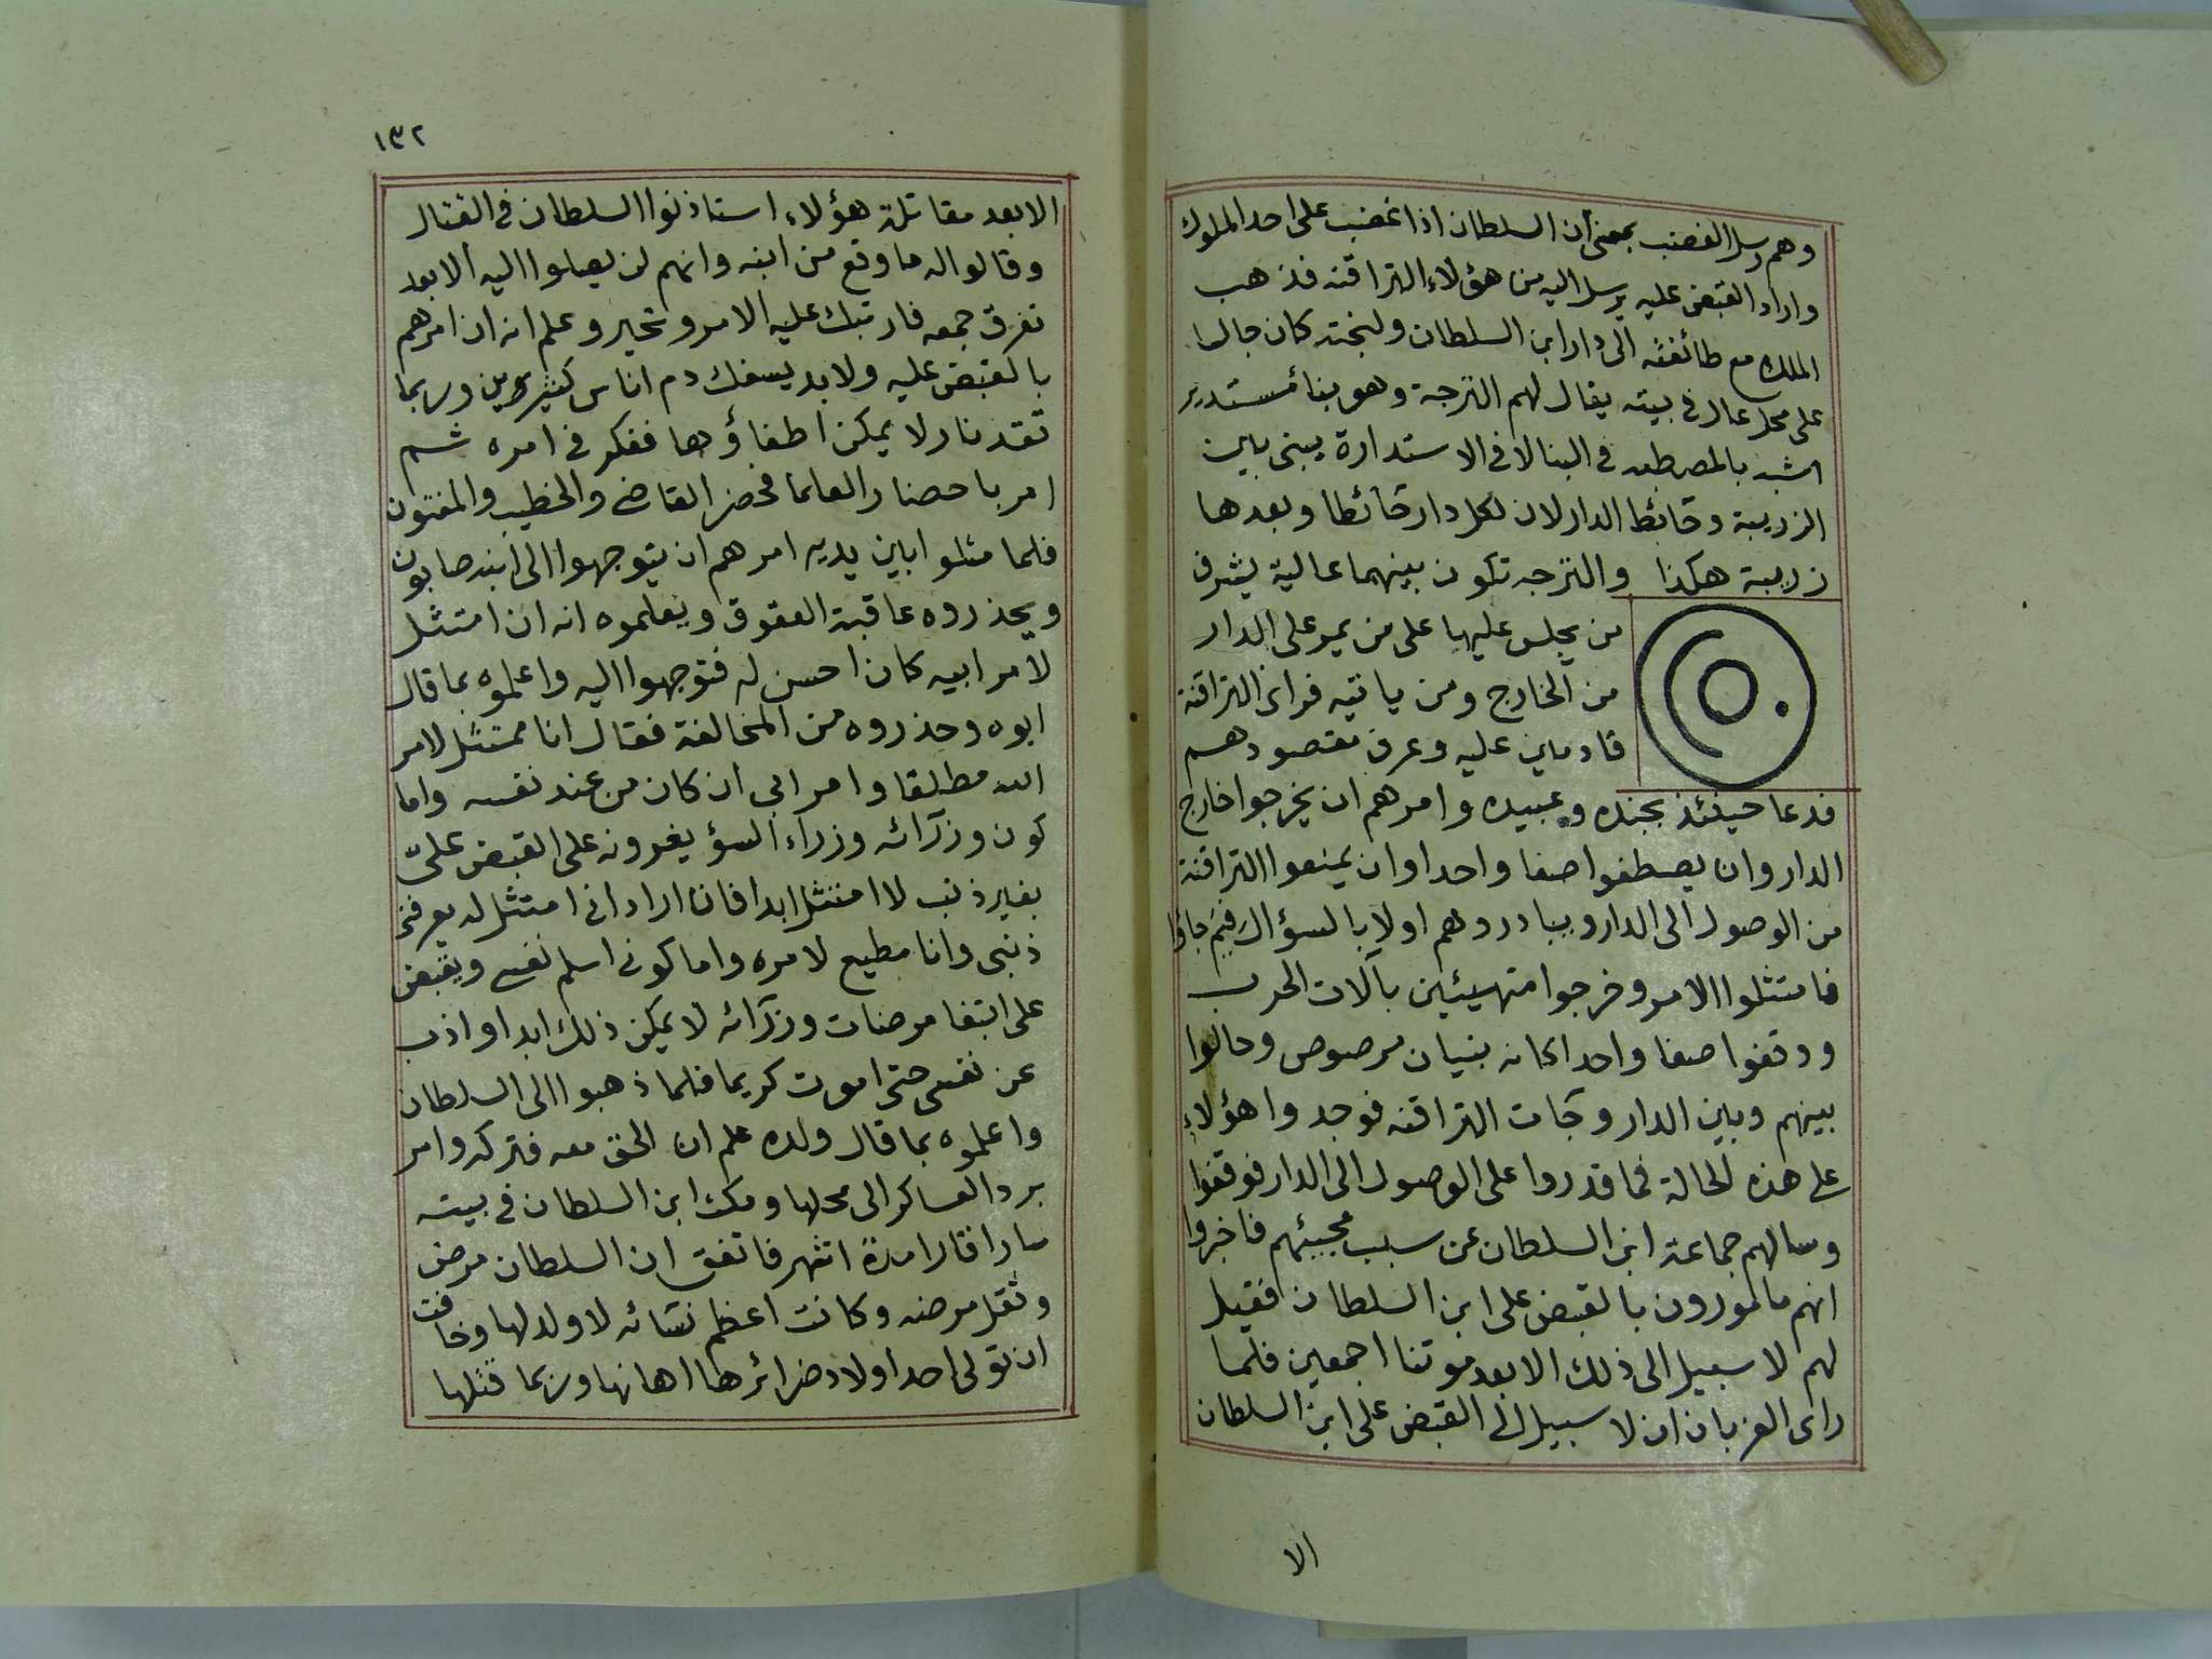 وهم رسل الغضب بمعنى أن السلطان اذا غضب على احد الملوك
واراد القبض عليه يرسل اليه من هؤلاء التراقنه فذهب
الملك مع طائفته الى دار ابن السلطان ولبخته كان جالسا
على محل عال فى بيته يقال لهم الترجة وهو بناء مستدير
اشبه بالمصطبه فى البنا لا فى الاستدارة يبنى بين
الزريبة وحائط الدار لان لكل دار حائطا وبعدها
زريبة هكذا والترجه تكون بينهما عالية يشرف
من يجلس عليها على من يمر على الدار
من الخارج ومن ياتيه فراى التراقنة
قادمين عليه وعرف مقصودهم
فدعا حينئذ بجنده وعبيده وامرهم ان يخرجوا خارج
الدار وان يصطفوا صفا واحدا وان يمنعوا التراقنة
من الوصول الى الدار ويبادروهم اولا بالسؤال فيم جاؤا
فامتثلوا الامر وخرجوا متهيئين بآلات الحرب
ووقفوا صفا واحدا كانه بنيان مرصوص وحالوا
بينهم وبين الدار وجآت التراقنه فوجدوا هؤلاء
على هذه الحالة فما قدروا على الوصول الى الدار فوقفوا
وسالهم جماعة ابن السلطان عن سبب مجيئهم فاخبروا
انهم مامورون بالقبض على ابن السلطان فقيل
لهم لا سبيل الى ذلك الا بعد موتنا اجمعين فلما
راى العزبان ان لا سبيل الى القبض على ابن السلطان
الا
١٣٢
الا بعد مقاتلة هؤلاء استاذنوا السلطان فى القتال
وقالوا له ما وقع من ابنه وانهم لن يصلوا اليه الا بعد
تفرق جمعه فارتبك عليه الامر وتحير وعلم انه ان امرهم
بالقبض عليه ولابد يسفك دم اناس كثيرين وربما
تقد نار لا يمكن اطفاؤها ففكر فى امره ثم
امر باحضار العلما فحضر القاضى والخطيب والمفتون
فلما مثلوا بين يديه امرهم ان يتوجهوا الى ابنه صابون
ويحذروه عاقبة العقوق ويعلموه انه ان امتثل
لامر ابيه كان احسن له فتوجهوا اليه واعلموه بما قال
ابوه وحذروه من المخالفة فقال انا ممتثل لامر
الله مطلقا وامر ابى ان كان من عند نفسه واما
كون وزرآئه وزراء السؤ يغرونه على القبض علىّ
بغير ذنب لا امتثل ابدا فان اراد انى امتثل له يعرفنى
ذنبى وانا مطيع لامره واما كونى اسلم نفسى ويقبض
على ابتغا مرضات وزرآئه لا يمكن ذلك ابدا واذب
عن نفسى حتى اموت كريما فلما ذهبوا الى السلطان
واعلموه بما قال ولده علم ان الحق معه فتركه وامر
برد العساكر الى محلها ومكث ابن السلطان فى بيته
سارا قارا مدة اشهر فاتفق ان السلطان مرض
وثقل مرضه وكانت اعظم نسآئه لا ولد لها وخافت
ان تولى احد اولاد ضرائرها اهانها وربما قتلها